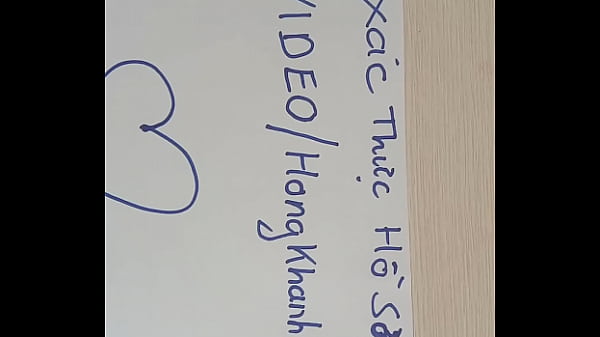 Xác Thực Hồ Sơ
VIDEO/HongKhanh